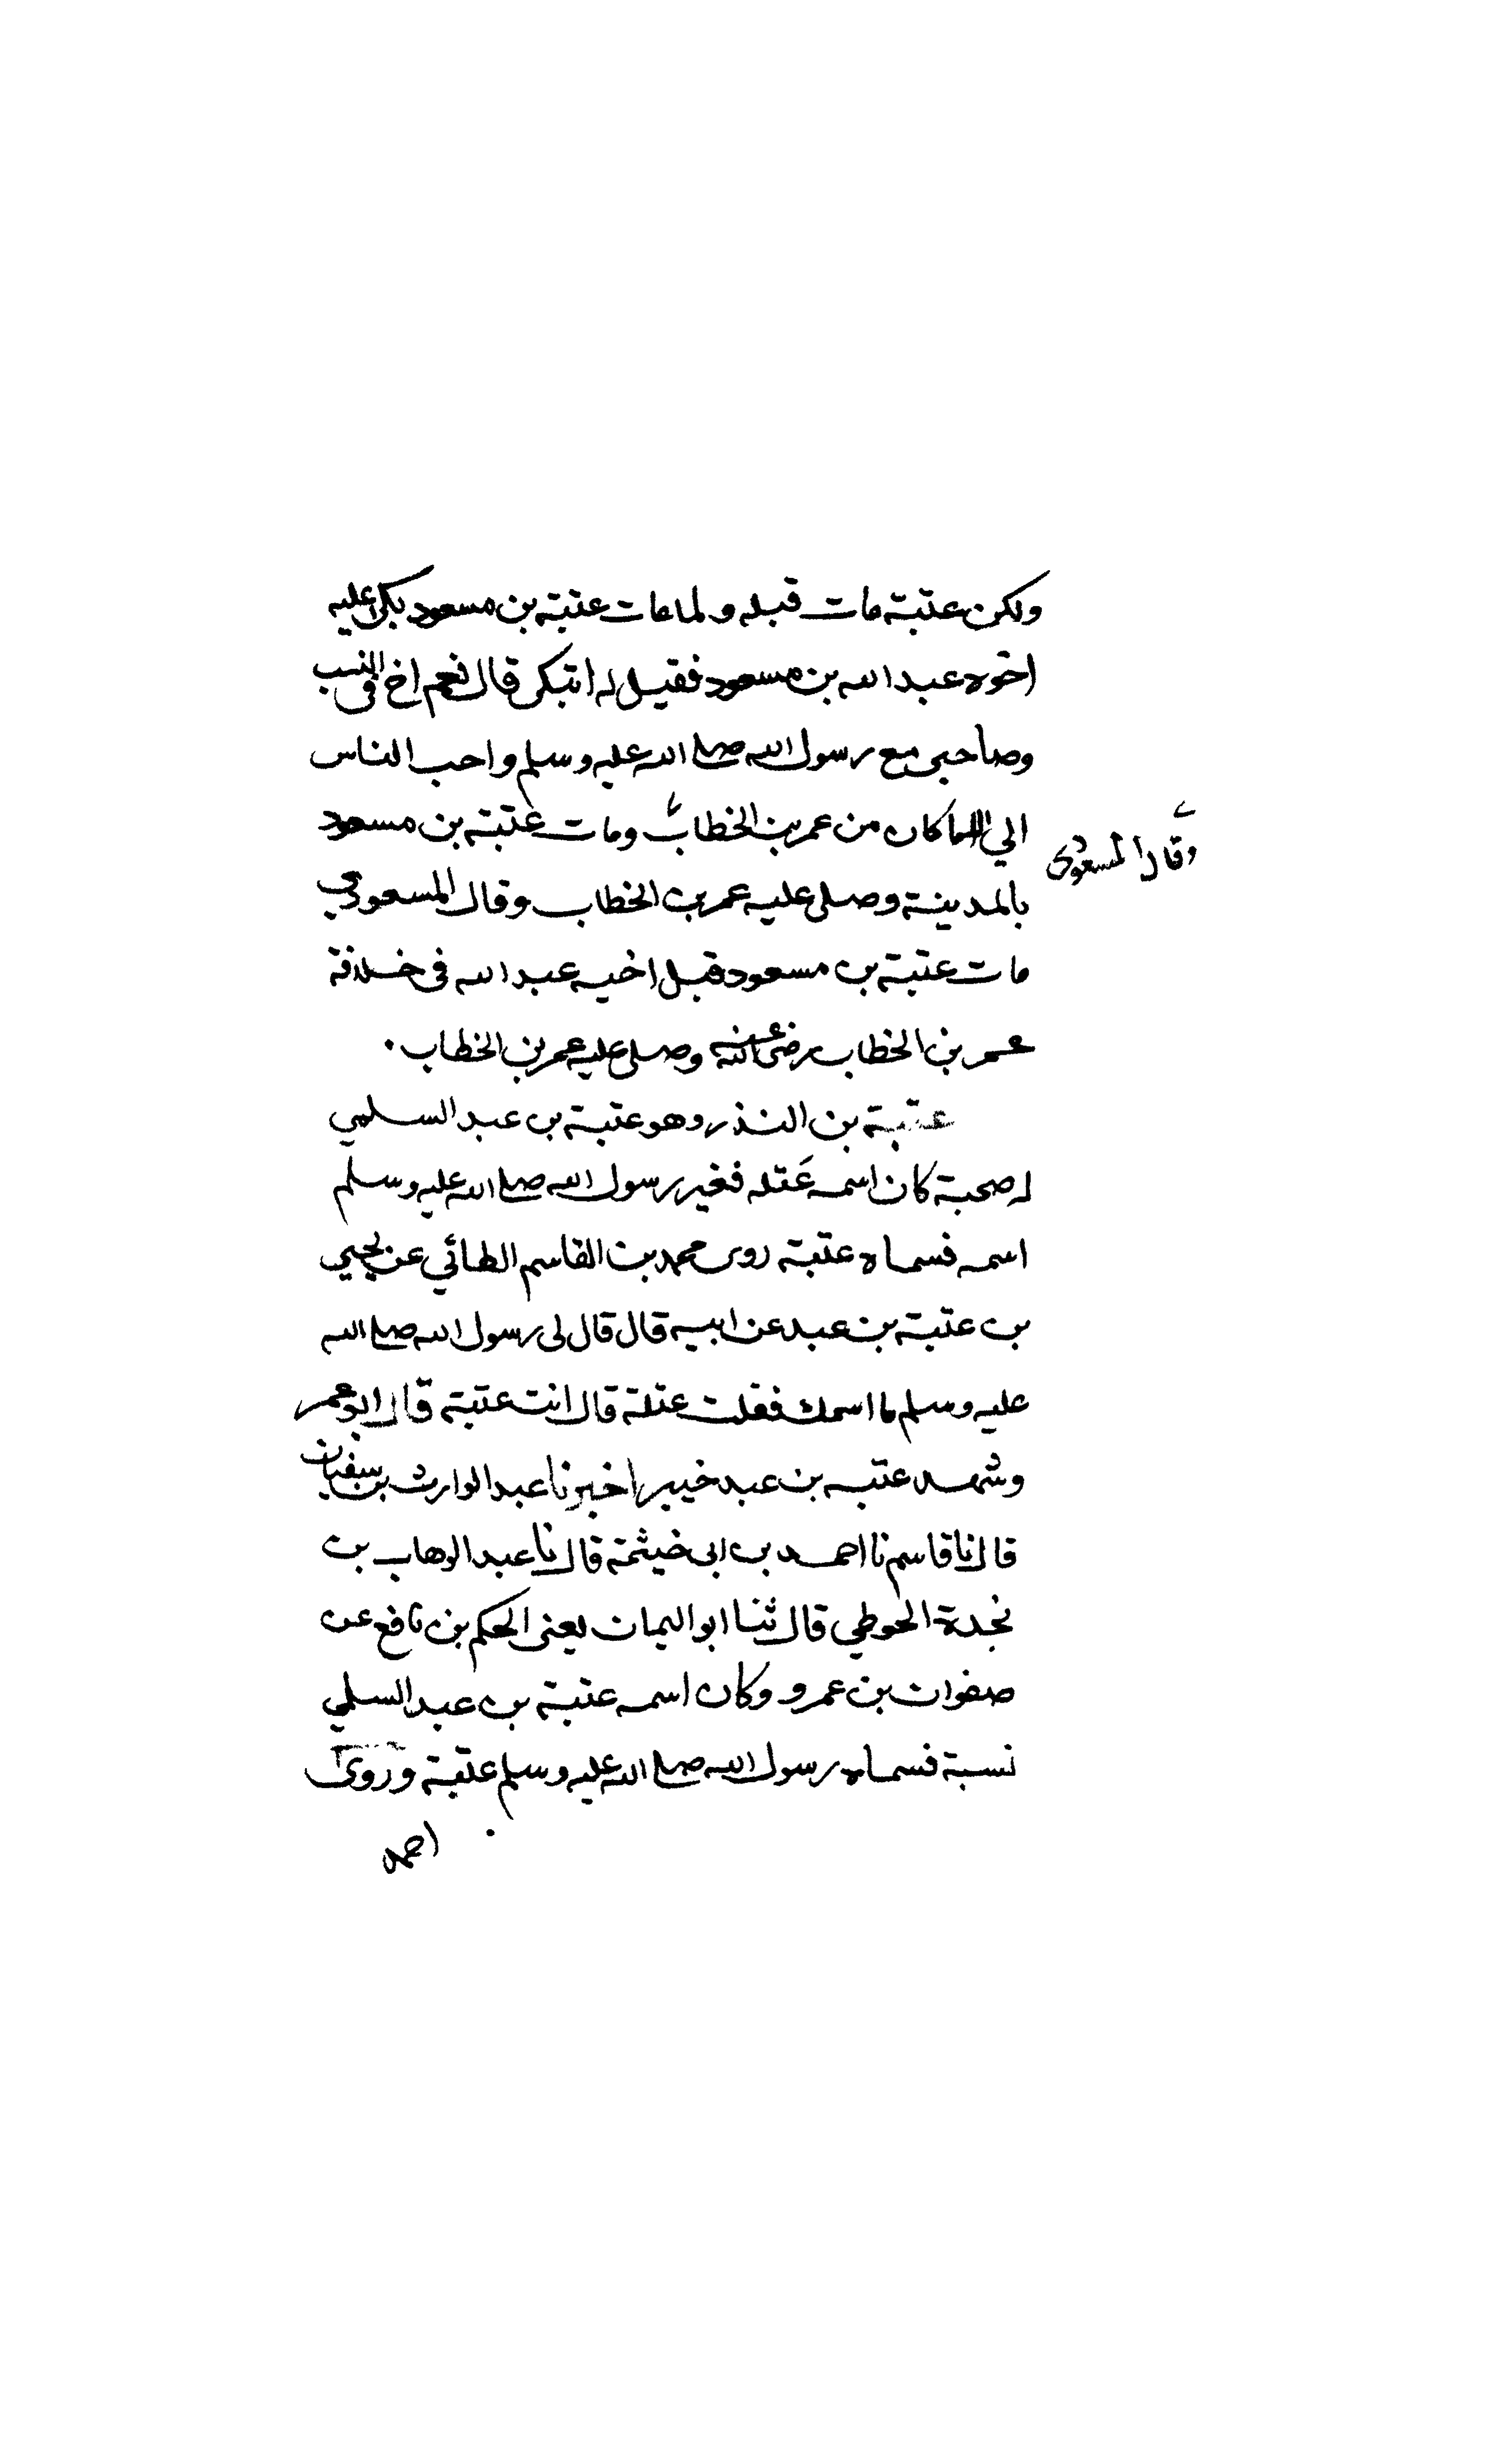 ولكن عتبة مات قبله ولما مات عتبة بن مسعود بكى عليه
اخوه عبد الله بن مسعود فقيل له اتبكى قال نعم اخى فى النسب
وصاحبى مع رسول الله صلى الله عليه وسلم واحب الناس
الي الا ما كان من عمر بن الخطاب ومات عتبة بن مسعود
وقال المسعودى
بالمدينة وصلى عليه عمر بن الخطاب وقال المسعودي
مات عتبة بن مسعود قبل اخيه عبد الله فى خلافة
عمر بن الخطاب رضى الله عنه وصلى عليه عمر بن الخطاب .
عتبة بن الندر وهو عتبة بن عبد السلمي
له صحبة كان اسمه عَتله فغير رسول الله صلى الله عليه وسلم
اسمه فسماه عتبة روى محمد بن القاسم الطائي عن يحيي
بن عتبة بن عبد عن ابيه قال قال لى رسول الله صلى الله
عليه وسلم ما اسمك فقلت عتلة قال انت عتبة قال ابو عمر
وشهد عتبه بن عبد خيبر اخبرنا عبد الوارث بن سفيان
قال نا قاسم نا احمد بن ابى خيثمة قال نا عبد الوهاب بن
نجدة الحوطي قال ثنا ابو اليمان يعنى الحكم بن نافع عن
صفوان بن عمرو وكان اسمه عتبة بن عبد السلمي
نسبة فسماه رسول الله صلى الله عليه وسلم عتبة وروى
احمد